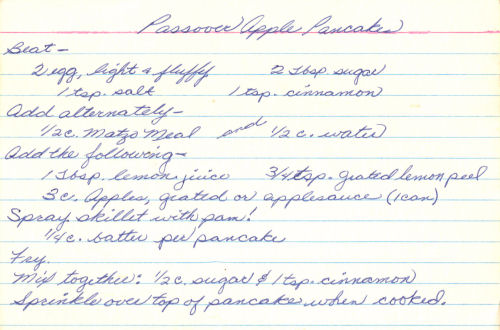 Passover Apple Pancakes
Beat -
2 egg, light & fluffy 2 Tbsp sugar
1 tsp. salt 1 tsp. cinnamon
Add alternately -
1/2 c. Matzo Meal and 1/2 c. water
Add the following -
1 Tbsp. lemon juice 3/4 tsp. grated lemon peel
3 c. Apples, grated or applesauce (1 can)
Spray skillet with pam!
1/4 c. batter per pancake
Fry.
Mix together: 1/2 c. sugar & 1 tsp. cinnamon
Sprinkle over top of pancake when cooked.